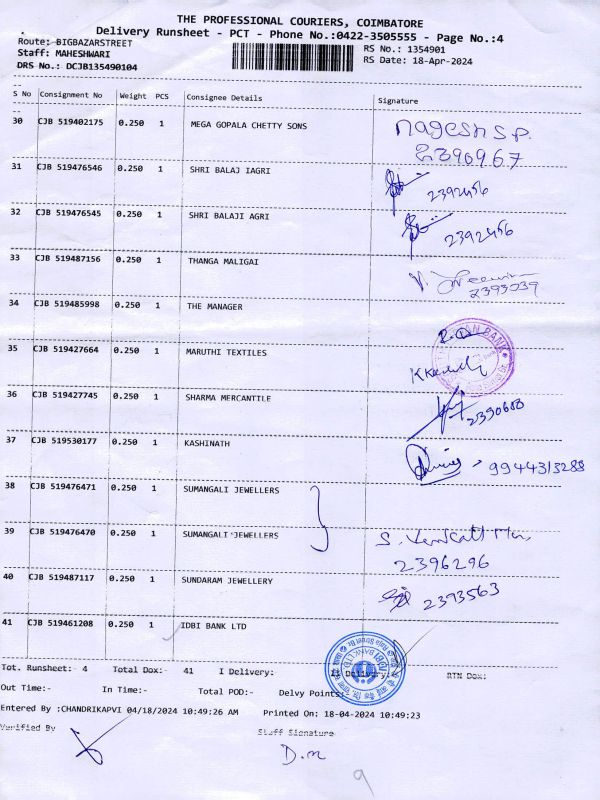 THE PROFESSIONAL COURIERS, COIMBATORE
Delivery Runsheet - PCT - Phone No.:0422-3505555 - Page No.:4
Route: BIGBAZARSTREET RS No.: 1354901
Staff: MAHESHWARI RS Date: 18-Apr-2024
DRS No.: DCJB135490104
S No Consignment No Weight PCS Consignee Details Signature
30 CJB 519402175 0.250 1 MEGA GOPALA CHETTY SONS nagesh S.P.
2390967
31 CJB 519476546 0.250 1 SHRI BALAJ IAGRI 2392456
32 CJB 519476545 0.250 1 SHRI BALAJI AGRI 2392456
33 CJB 519487156 0.250 1 THANGA MALIGAI
2393039
34 CJB 519485998 0.250 1 THE MANAGER
35 CJB 519427664 0.250 1 MARUTHI TEXTILES
36 CJB 519427745 0.250 1 SHARMA MERCANTTLE 2390688
37 CJB 519530177 0.250 1 KASHINATH 9944313288
38 CJB 519476471 0.250 1 SUMANGALI JEWELLERS
39 CJB 519476470 0.250 1 SUMANGALI JEWELLERS
2396296
40 CJB 519487117 0.250 1 SUNDARAM JEWELLERY 2393563
41 CJB 519461208 0.250 1 IDBI BANK LTD
Tot. Runsheet: 4 Total Dox:- 41 I Delivery: II Delivery:- RTN Dox:
Out Time:- In Time:- Total POD:- Delvy Points:-
Entered By :CHANDRIKAPVI 04/18/2024 10:49:26 AM Printed On: 18-04-2024 10:49:23
Verified By Staff Signature
D.m
9